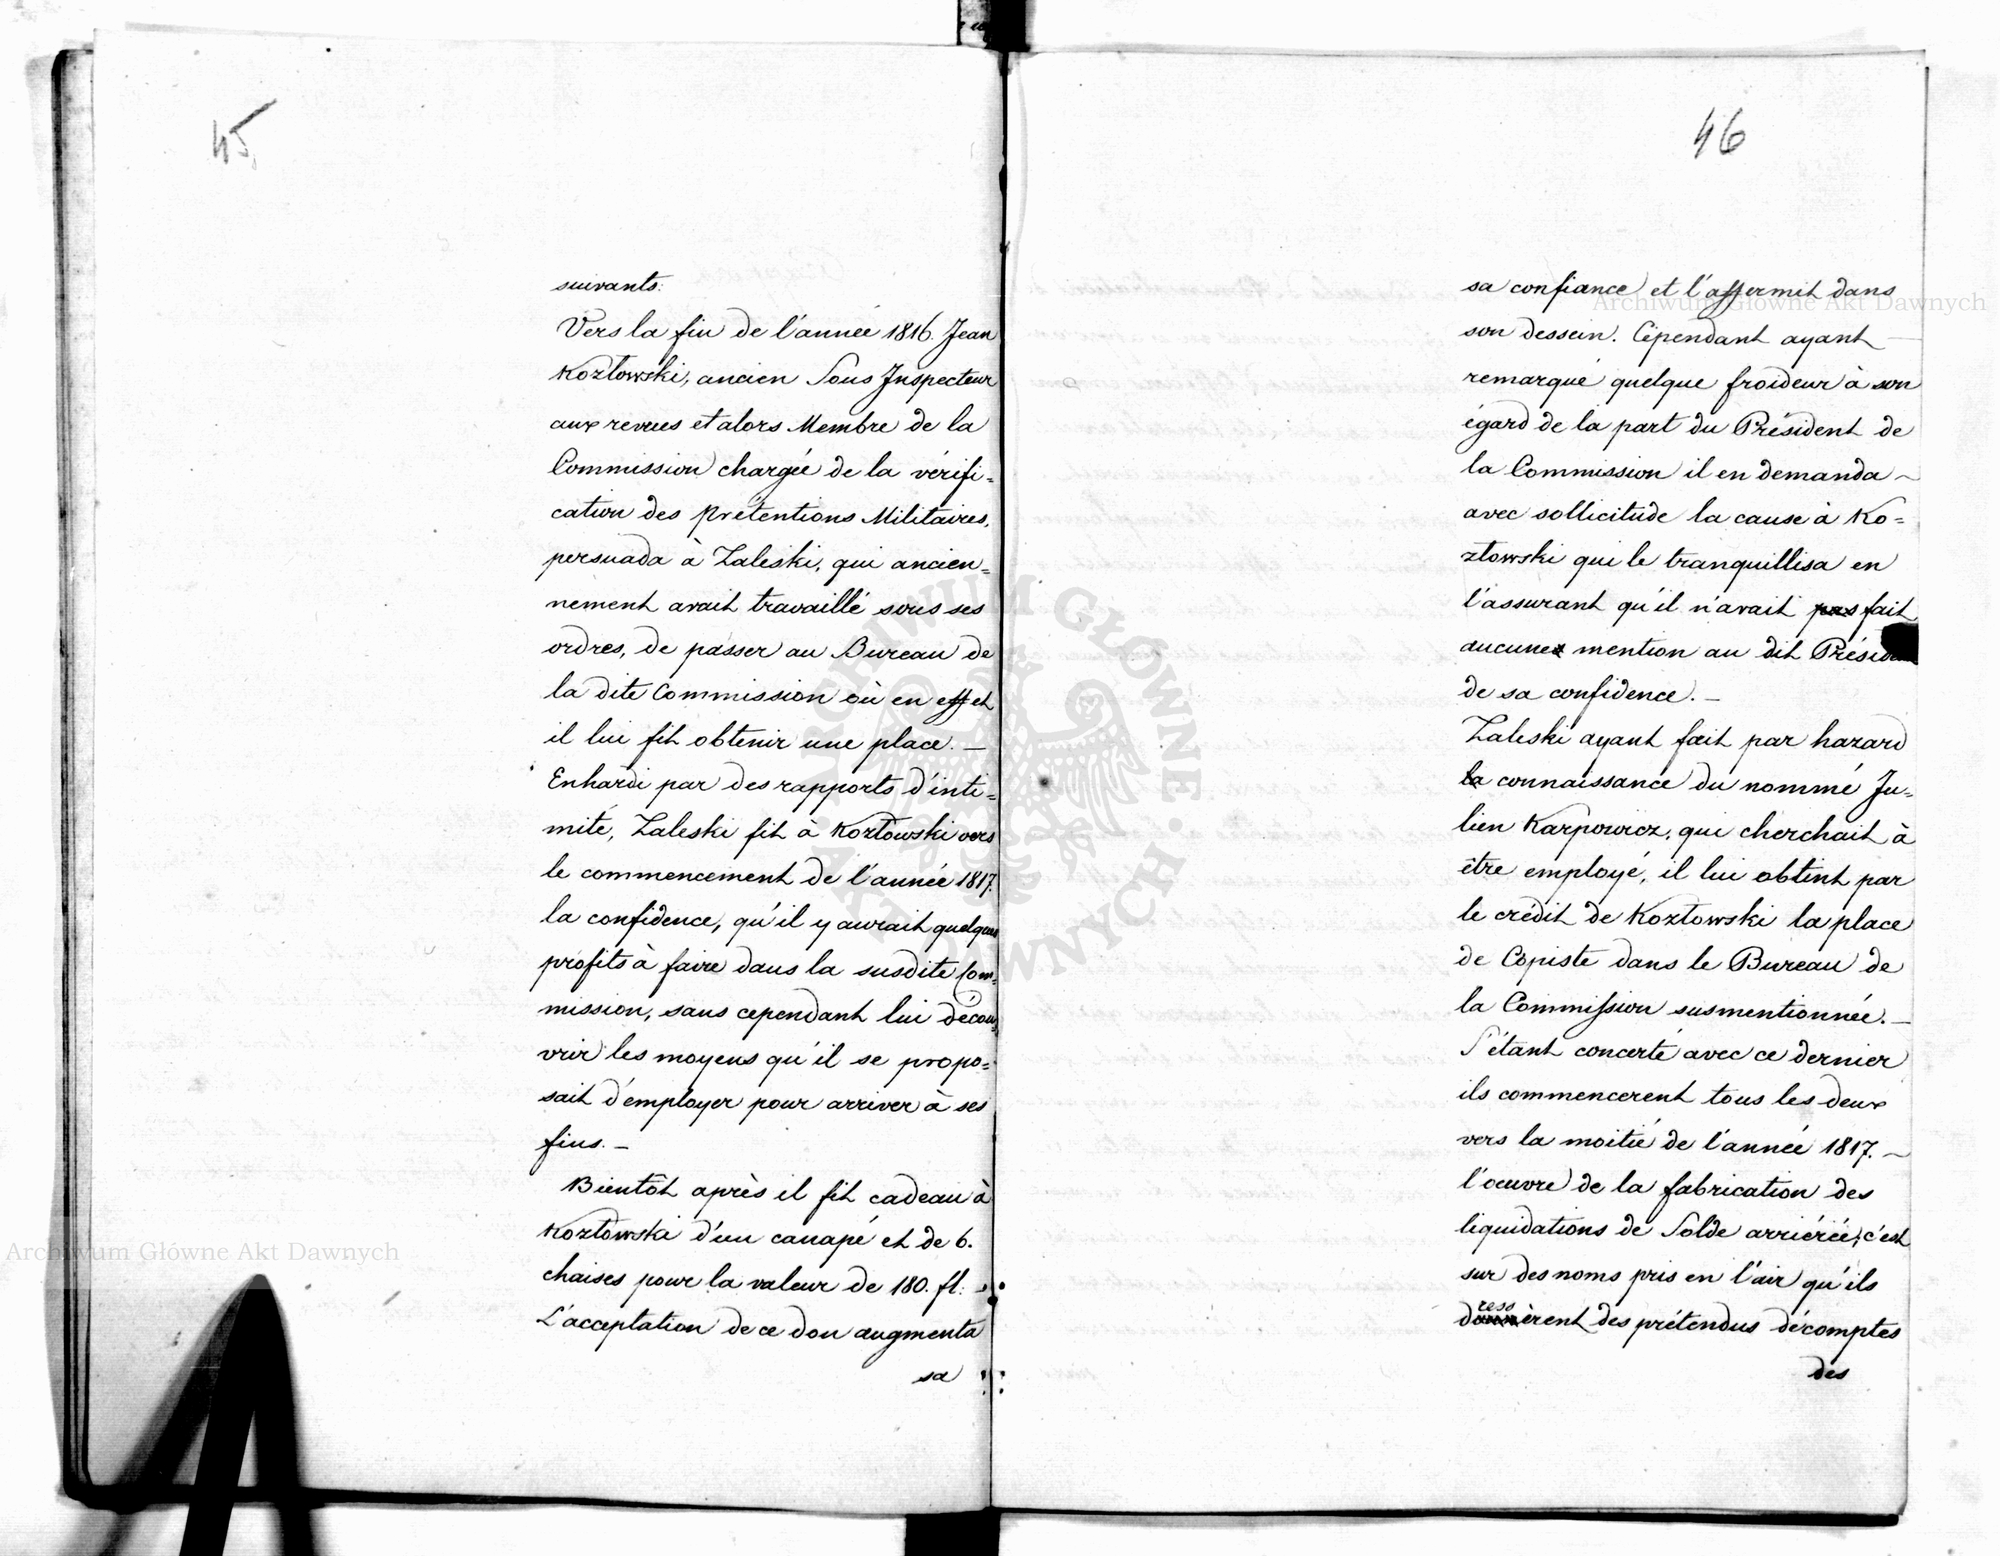 45
suivants:
Vers la fin de l'année 1816. Jean
Kozłowski, ancien Sous Inspecteur
aux revues et alors Membre de la
Commission chargée de la vérifi=
cation des prétentions Militaires,
persuada à Zaleski, qui ancien=
nement avait travaillé sous ses
ordres, de passer au Bureau de
la dite Commission où en effet
il lui fit obtenir une place. —
Enhardi par des rapports d'inti=
mité, Zaleski fit à Kozłowski vers
le commencement de l'année 1817.
la confidence, qu'il y aurait quelques
profits à faire dans la susdite Com=
mission, sans cependant lui décou=
vrir les moyens qu'il se propo=
sait d'employer pour arriver à ses
fins. —
Bientôt après il fit cadeau à
Kozłowski d'un canapé et de 6.
chaises pour la valeur de 180. fl.
L'acceptation de ce don augmenta
sa
46
sa confiance et l'affermit dans
son dessein. Cépendant ayant
remarqué quelque froideur à son
égard de la part du Président de
la Commission il en demanda
avec sollicitude la cause à Ko=
złowski qui le tranquillisa en
l'assurant qu'il n'avait pas fait
aucunes mention au dit Présid
de sa confidence. —
Zaleski ayant fait par hazard
la connaissance du nommé Ju=
lien Karpowicz, qui cherchait à
être employé, il lui obtint par
le crédit de Kozłowski la place
de Copiste dans le Bureau de
la Commission susmentionnée. —
S'étant concerté avec ce dernier
ils commencerent tous les deux
vers la moitié de l'année 1817. —
l'œuvre de la fabrication des
liquidations de Solde arriérée, c'est
sur des noms pris en l'air qu'ils
dressèrent des prétendus décomptes
des
Archiwum Główne Akt Dawnych
Archiwum Główne Akt Dawnych
ARCHIWUM GŁÓWNE AKT DAWNYCH